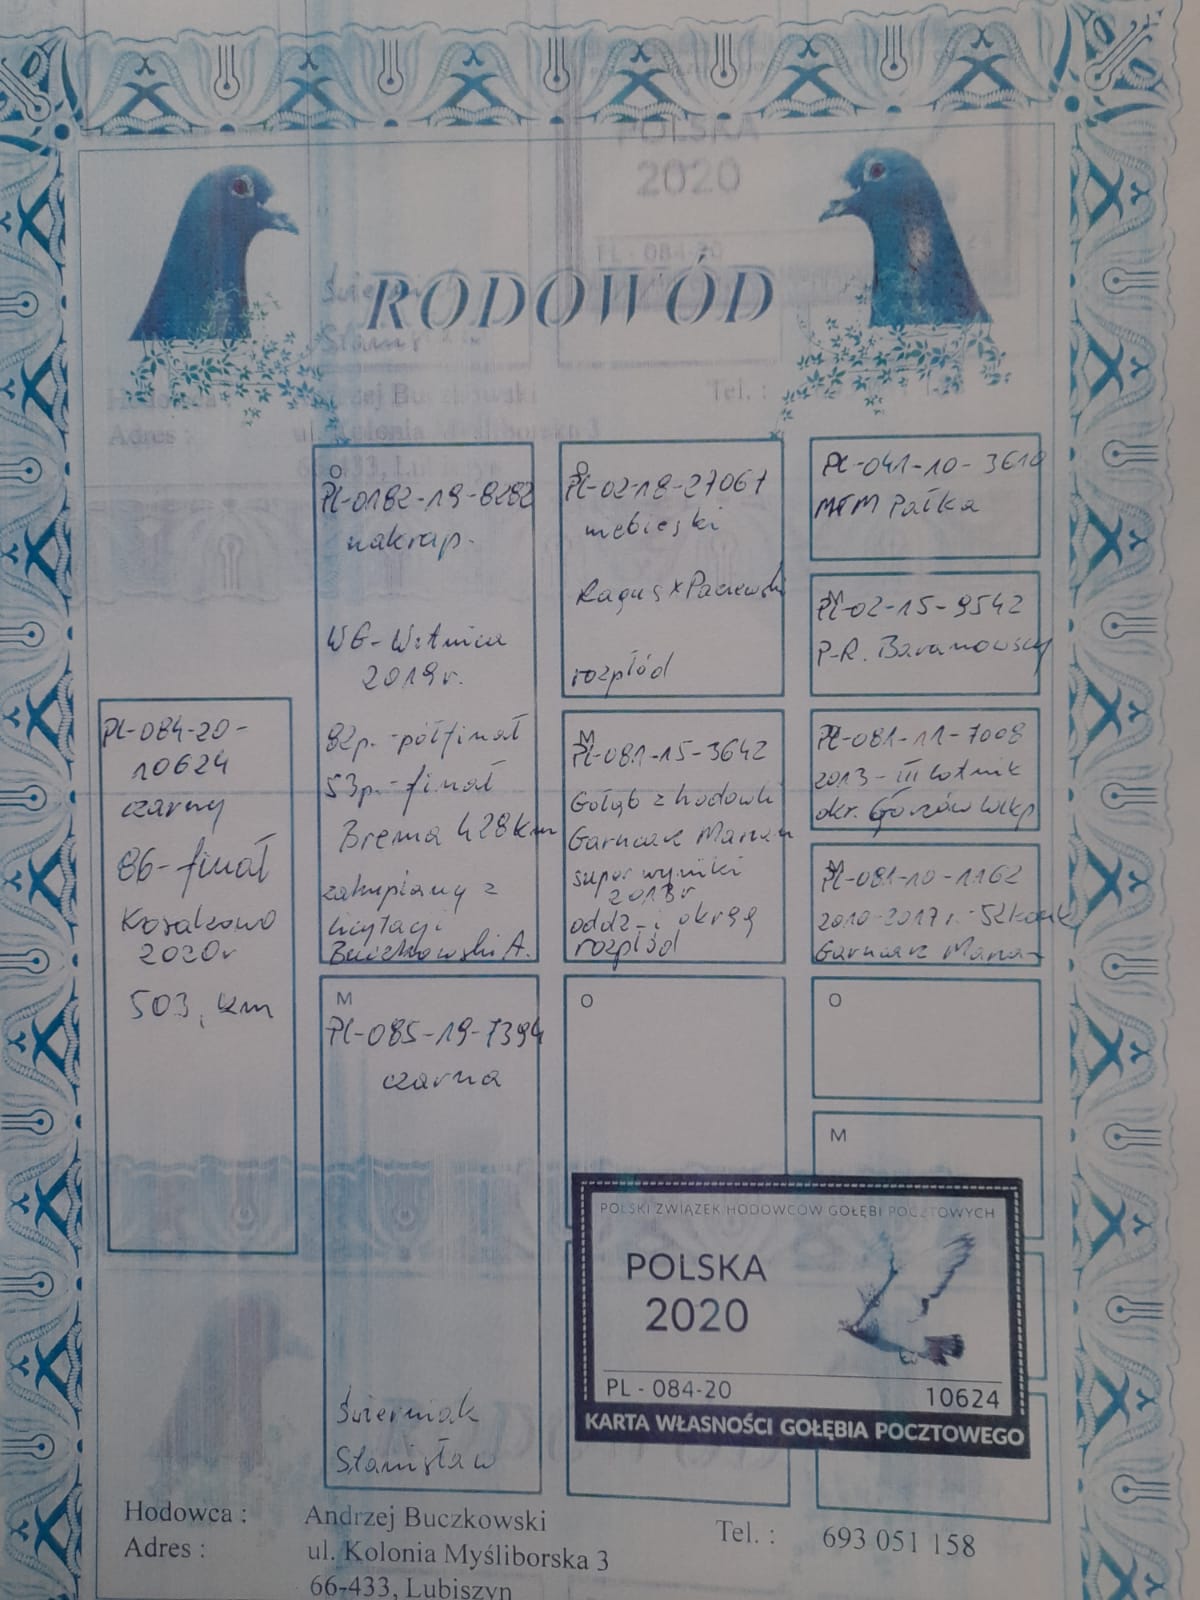 RODOWÓD
PL-084-20-
10624
czarny
86-finał
2020r
503, km
O
PL-0182-19-8282
nakrap.
WG-Witnica
2019r.
82p.-półfinał
53p.-finał
Brema 428km
zakupiony z
licytacji
Buczkowski A.
M
PL-085-19-7394
czarna
Świerniak
Stanisław
O
PL-02-18-27067
niebieski
rozpłód
M
PL-081-15-3642
Gołąb z hodowli
Garncarz Marian
super wyniki
2018r
oddz-i okręg
rozpłód
O
M
PL-041-10-3610
MTM Pałka
M
PL-02-15-9542
P-R. Baranowscy
PL-081-11-7008
2013-III lotnik
okr. Gorzów Wlkp
M
PL-081-10-1162
2010-2017r.
Garncarz Marian
O
M
POLSKI ZWIĄZEK HODOWCÓW GOŁĘBI POCZTOWYCH
POLSKA
2020
PL - 084-20 10624
KARTA WŁASNOŚCI GOŁĘBIA POCZTOWEGO
Hodowca : Andrzej Buczkowski Tel. : 693 051 158
Adres : ul. Kolonia Myśliborska 3
66-433, Lubiszyn